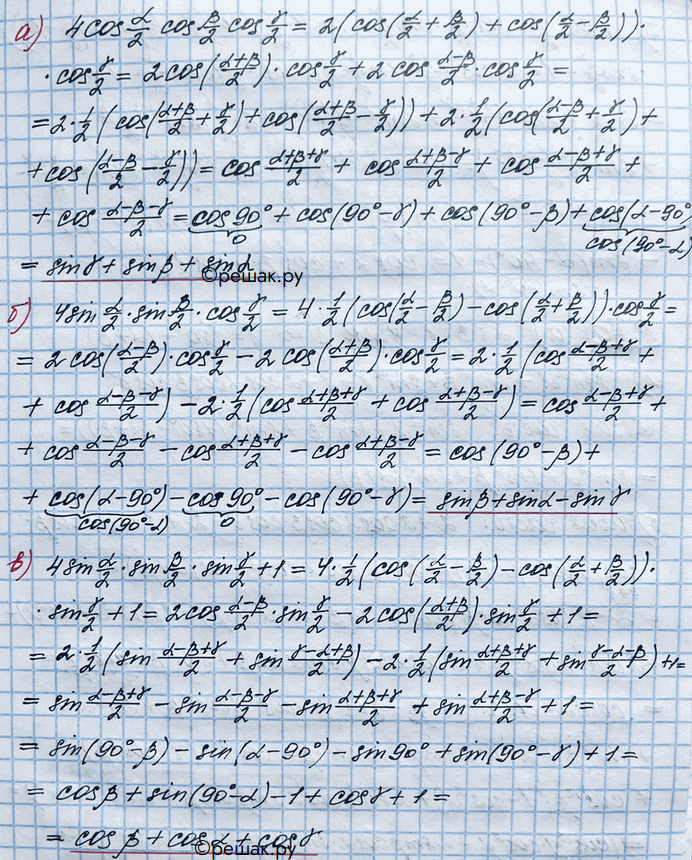 а) 4cos α/2 cos β/2 cos γ/2 = 2(cos(α/2 + β/2) + cos(α/2 − β/2))·
·cos γ/2 = 2cos((α+β)/2)·cos γ/2 + 2cos (α−β)/2·cos γ/2 =
= 2·1/2 (cos((α+β)/2 + γ/2) + cos((α+β)/2 − γ/2)) + 2·1/2(cos((α−β)/2 + γ/2) +
+ cos((α−β)/2 − γ/2)) = cos (α+β+γ)/2 + cos (α+β−γ)/2 + cos (α−β+γ)/2 +
+ cos (α−β−γ)/2 = cos 90° + cos(90°−γ) + cos(90°−β) + cos(α−90°)
0 cos(90°−α)
= sinγ + sinβ + sinα
©решак.ру
б) 4sin α/2·sin β/2·cos γ/2 = 4·1/2(cos(α/2 − β/2) − cos(α/2 + β/2))·cos γ/2 =
= 2cos((α−β)/2)·cos γ/2 − 2cos((α+β)/2)·cos γ/2 = 2·1/2 (cos (α−β+γ)/2 +
+ cos (α−β−γ)/2) − 2·1/2(cos (α+β+γ)/2 + cos (α+β−γ)/2) = cos (α−β+γ)/2 +
+ cos (α−β−γ)/2 − cos (α+β+γ)/2 − cos (α+β−γ)/2 = cos(90°−β) +
+ cos(α−90°) − cos 90° − cos(90°−γ) = sinβ + sinα − sinγ
cos(90°−α) 0
в) 4sin α/2·sin β/2·sin γ/2 + 1 = 4·1/2(cos(α/2 − β/2) − cos(α/2 + β/2))·
·sin γ/2 + 1 = 2cos (α−β)/2·sin γ/2 − 2cos((α+β)/2)·sin γ/2 + 1 =
= 2·1/2(sin (α−β+γ)/2 + sin (γ−α+β)/2) − 2·1/2(sin (α+β+γ)/2 + sin (γ−α−β)/2) + 1 =
= sin (α−β+γ)/2 − sin (α−β−γ)/2 − sin (α+β+γ)/2 + sin (α+β−γ)/2 + 1 =
= sin(90°−β) − sin(α−90°) − sin 90° + sin(90°−γ) + 1 =
= cosβ + sin(90°−α) − 1 + cosγ + 1 =
= cosβ + cosα + cosγ
©решак.ру